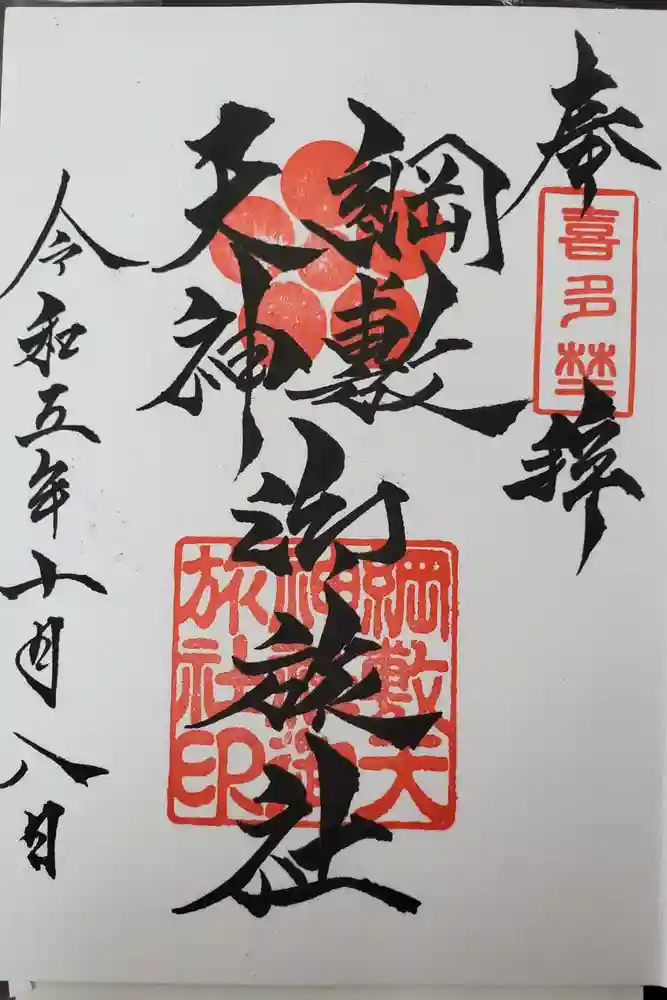 奉拝
喜多埜
綱敷
天神
御旅社
綱敷天
神社御
旅社印
令和五年十月八日